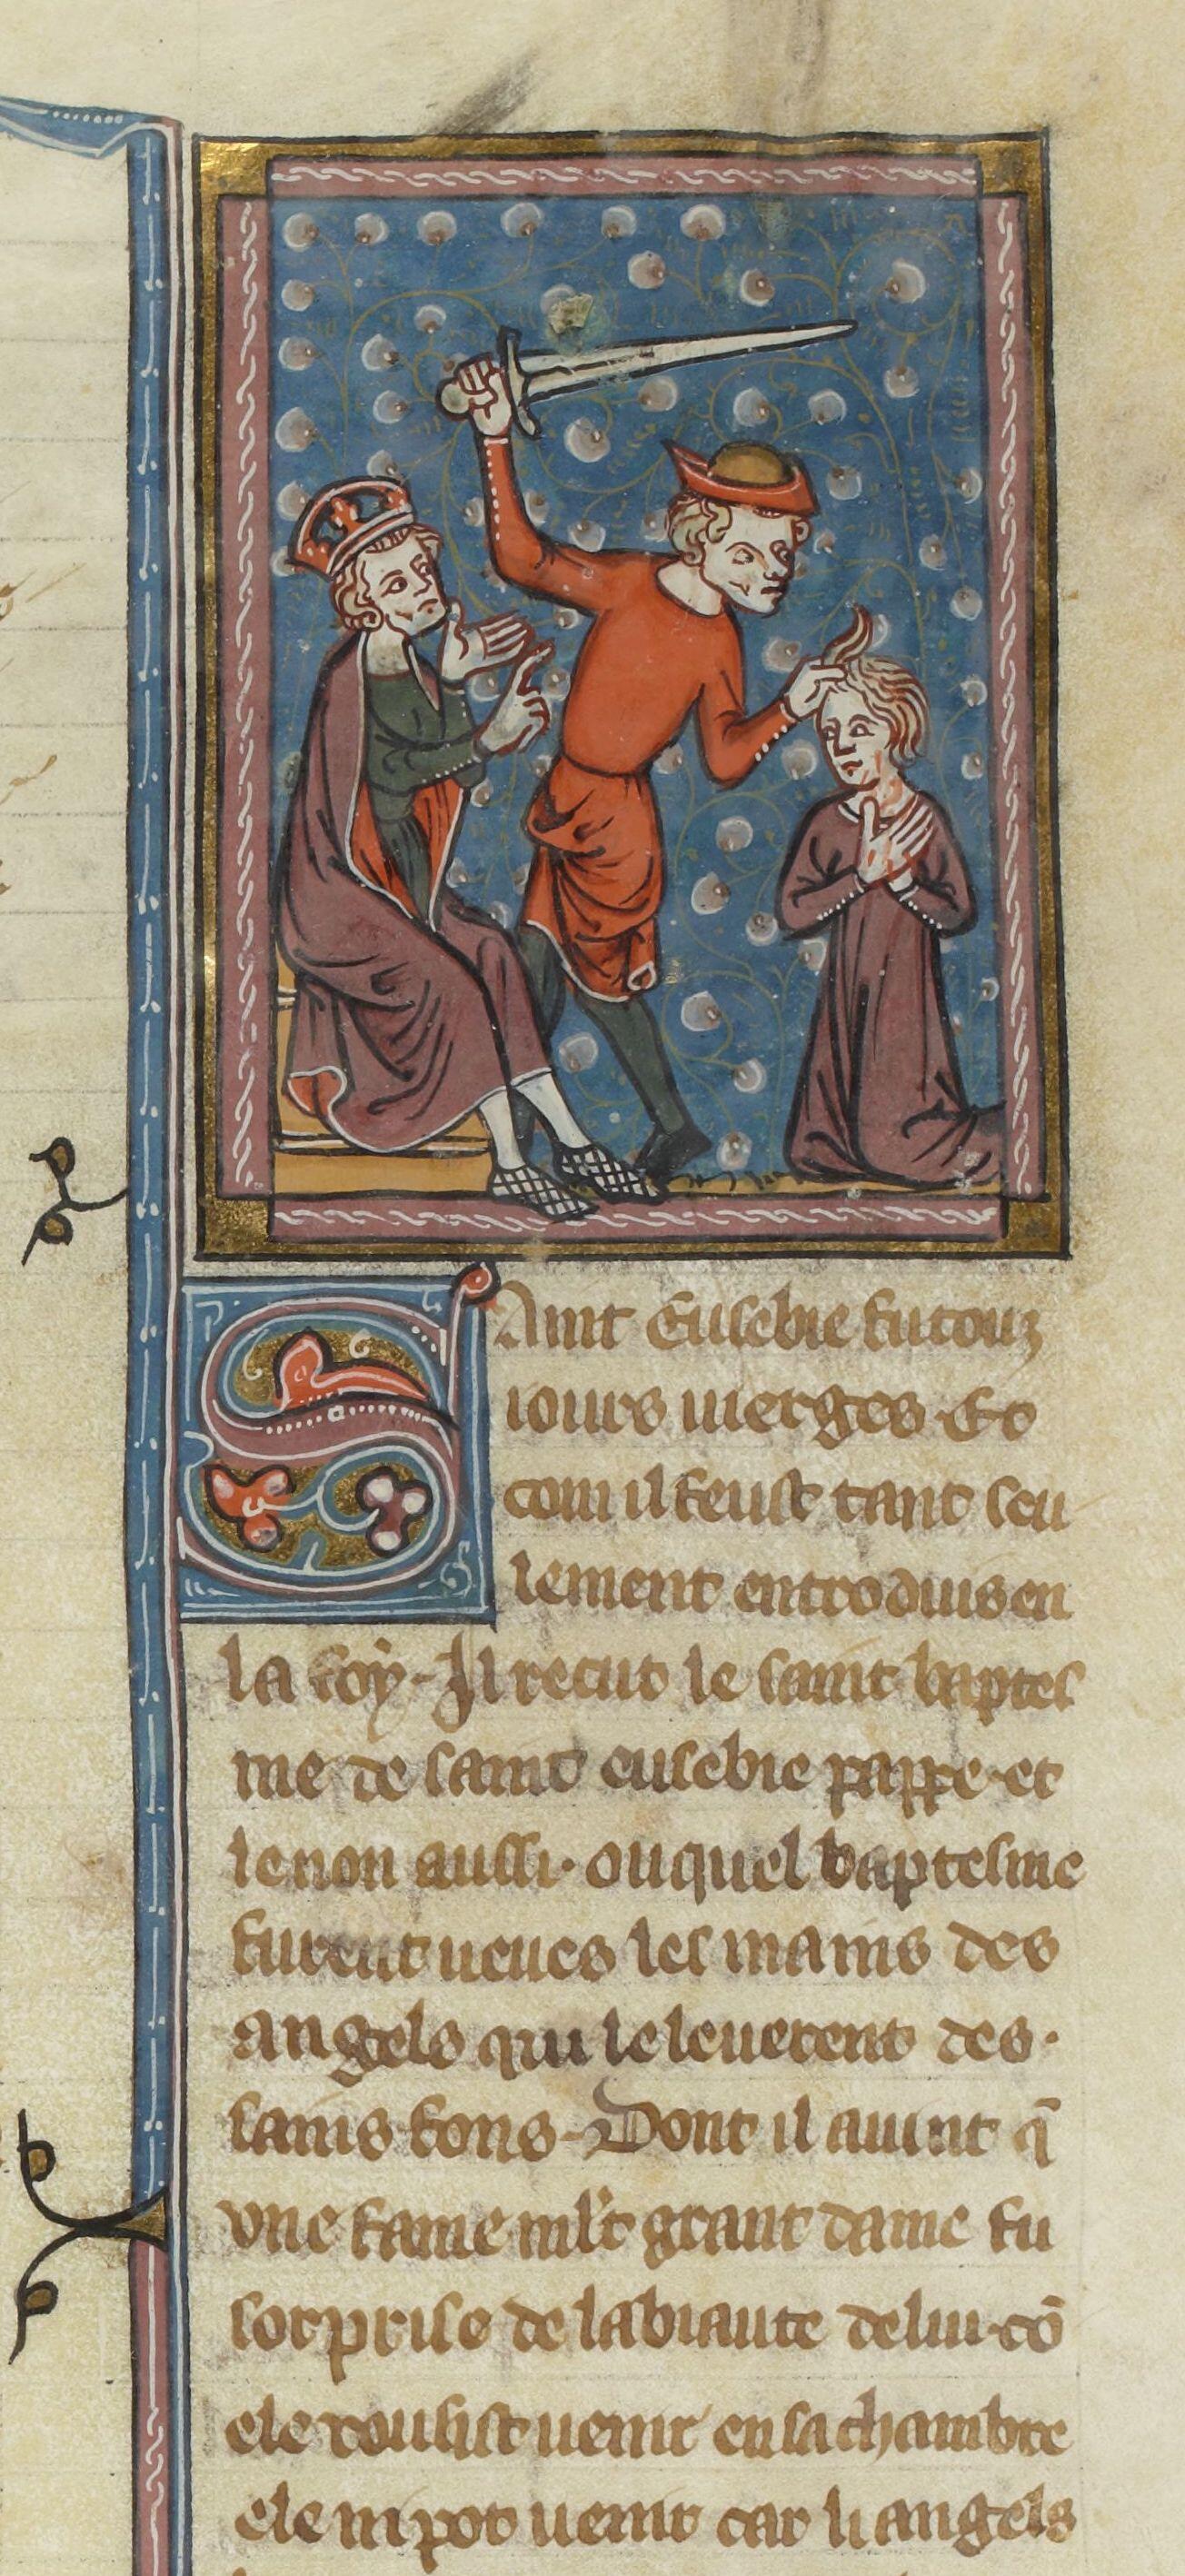 Saint Eusebie fu touz
iours uierges Et
com il feust tant seu
lement entroduis en
la foy. Il recut le saint baptes
me de saint eusebie pappe. et
le non aussi. ou quel baptesme
furent ueues les mains des
angels qui le leuerent des.
sains fons. Dont il auint q̄
vne fame ml't grant dame fu
sorprise de la biaute de lui. cō
ele vousist uenir en sa chambre
ele ni pot uenir car li angels